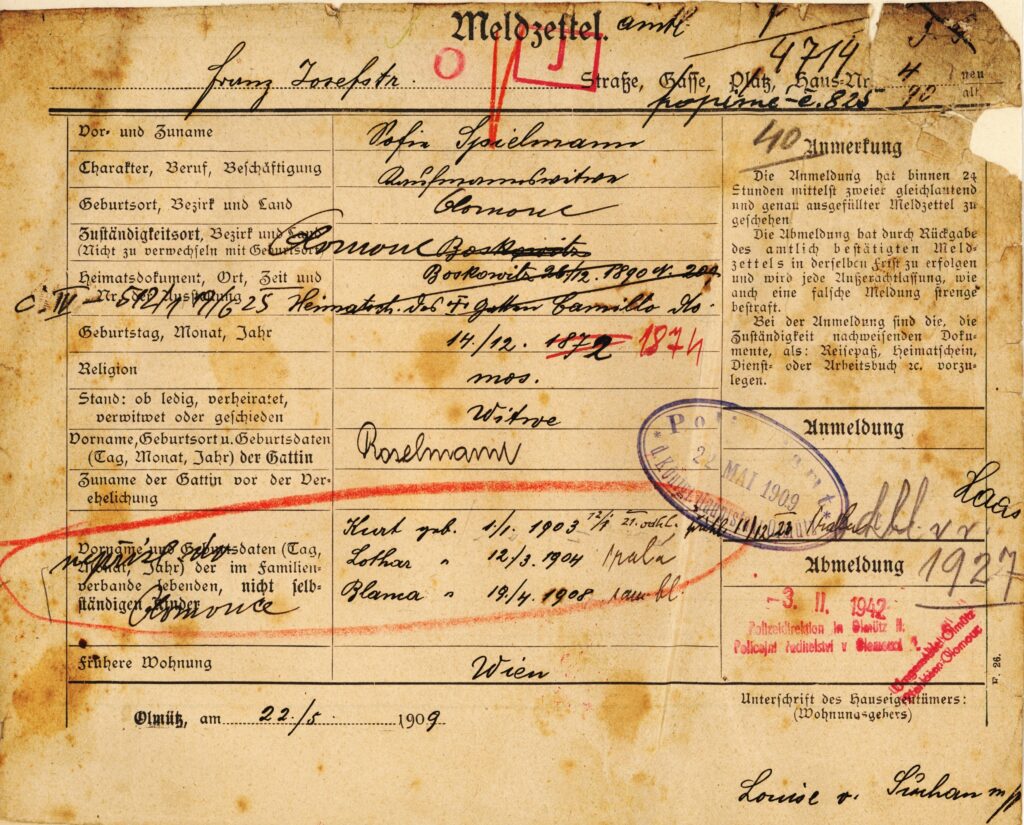 Meldzettel. amtl.
J
4714
Franz Josefstr. Straße, Gasse, Platz, Haus-Nr. 4 neu
popisné č. 825 90 alt
Vor- und Zuname Sofie Spielmann
Charakter, Beruf, Beschäftigung Kaufmannswitwe
Geburtsort, Bezirk und Land Olomouc
Zuständigkeitsort, Bezirk und Land Olomouc Boskowitz
(Nicht zu verwechseln mit Geburtsort)
Boskowitz 26/12. 1890 N. 209
Heimatsdokument, Ort, Zeit und
Nr. der Ausstellung Heimatsch. des † Gatten Camillo
Geburtstag, Monat, Jahr 14./12. 1872 1874
Religion mos.
Stand: ob ledig, verheiratet, Witwe
verwitwet oder geschieden
Vorname, Geburtsort u. Geburtsdaten
(Tag, Monat, Jahr) der Gattin
Zuname der Gattin vor der Ver-
ehelichung
Kurt geb. 1/1. 1903
Vorname und Geburtsdaten (Tag,
Monat, Jahr) der im Familien- Lothar " 12/3. 1904
verbande lebenden, nicht selb-
ständigen Kinder Blama " 19/4. 1908
Olomouce
Frühere Wohnung Wien
Olmütz, am 22./5. 1909
40
Anmerkung
Die Anmeldung hat binnen 24
Stunden mittelst zweier gleichlautend
und genau ausgefüllter Meldzettel zu
geschehen
Die Abmeldung hat durch Rückgabe
des amtlich bestätigten Meld-
zettels in derselben Frist zu erfolgen
und wird jede Außerachtlassung, wie
auch eine falsche Meldung strenge
bestraft.
Bei der Anmeldung sind die, die
Zuständigkeit nachweisenden Doku-
mente, als: Reisepaß, Heimatschein,
Dienst- oder Arbeitsbuch ec. vorzu-
legen.
Anmeldung
22 MAI 1909
Haas
Abmeldung 1927
-3. II. 1942
Polizeidirektion in Olmütz
Policejní ředitelství v Olomouci
F. 26.
Unterschrift des Hauseigentümers:
(Wohnungsgebers)
Louise v.